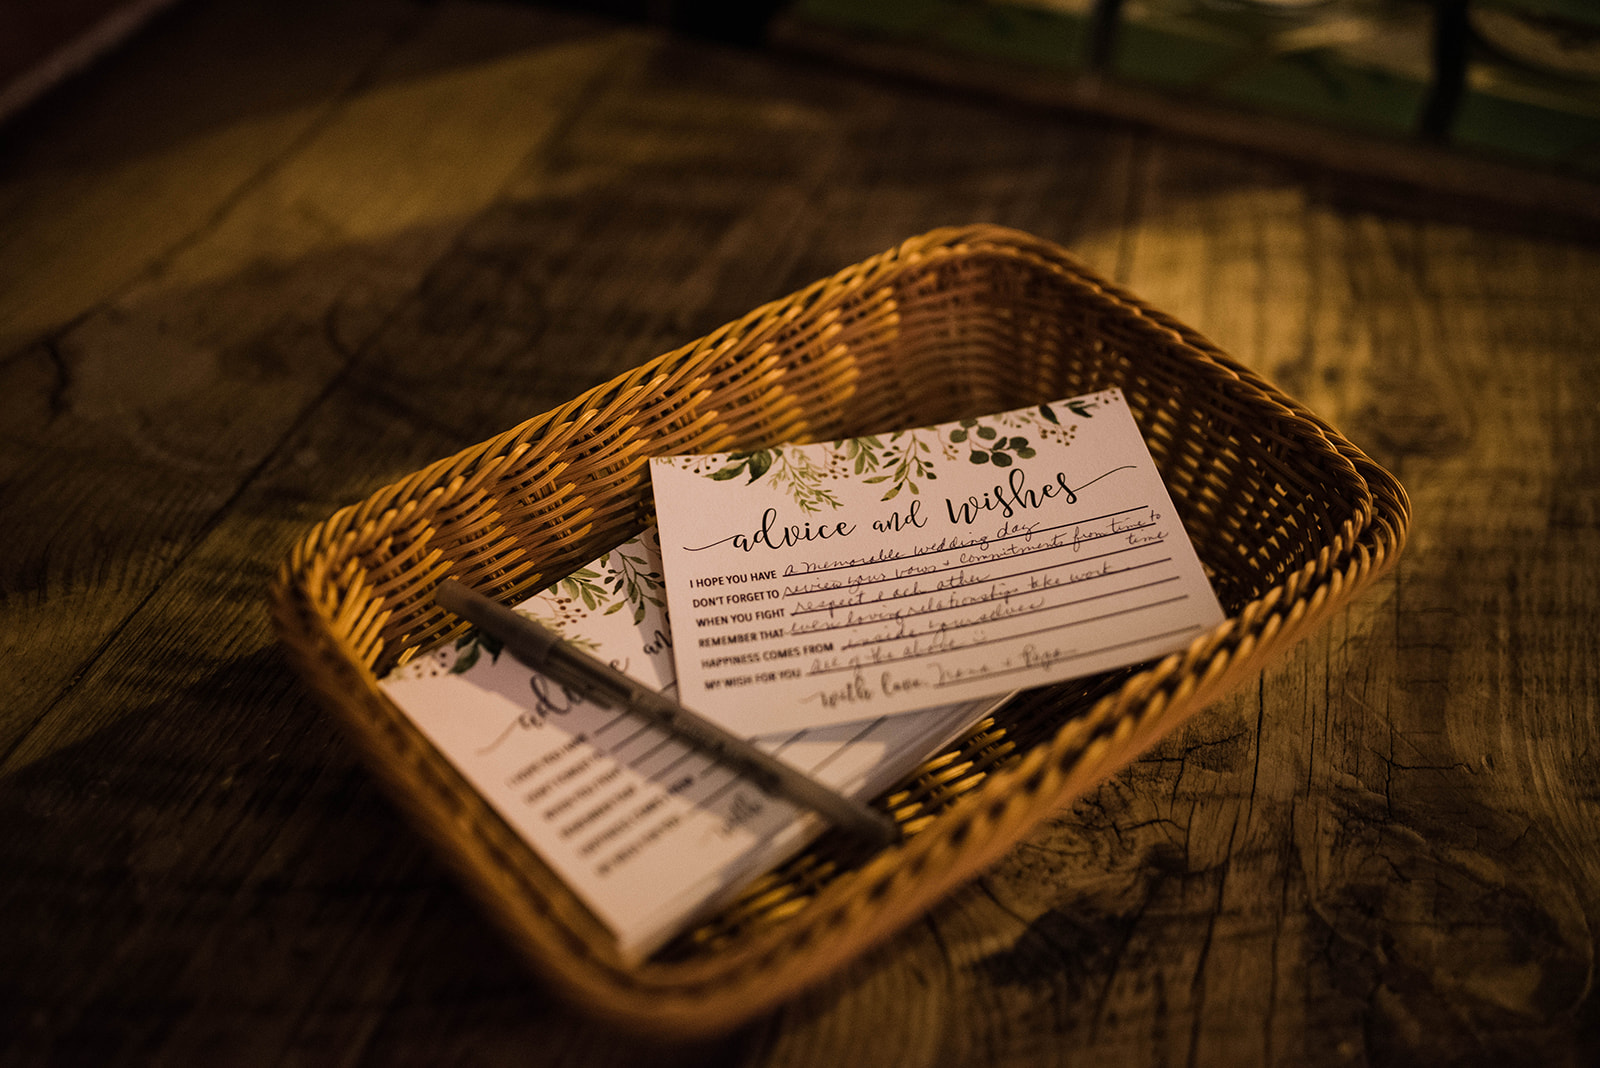 advice and Wishes
I HOPE YOU HAVE a memorable wedding day
DON'T FORGET TO review your vows + commitments from time to time
WHEN YOU FIGHT respect each other
REMEMBER THAT even loving relationships take work
HAPPINESS COMES FROM inside yourselves
MY WISH FOR YOU all of the above
with love,
I HOPE YOU HAVE
DON'T FORGET TO
WHEN YOU FIGHT
REMEMBER THAT
HAPPINESS COMES FROM
MY WISH FOR YOU
with